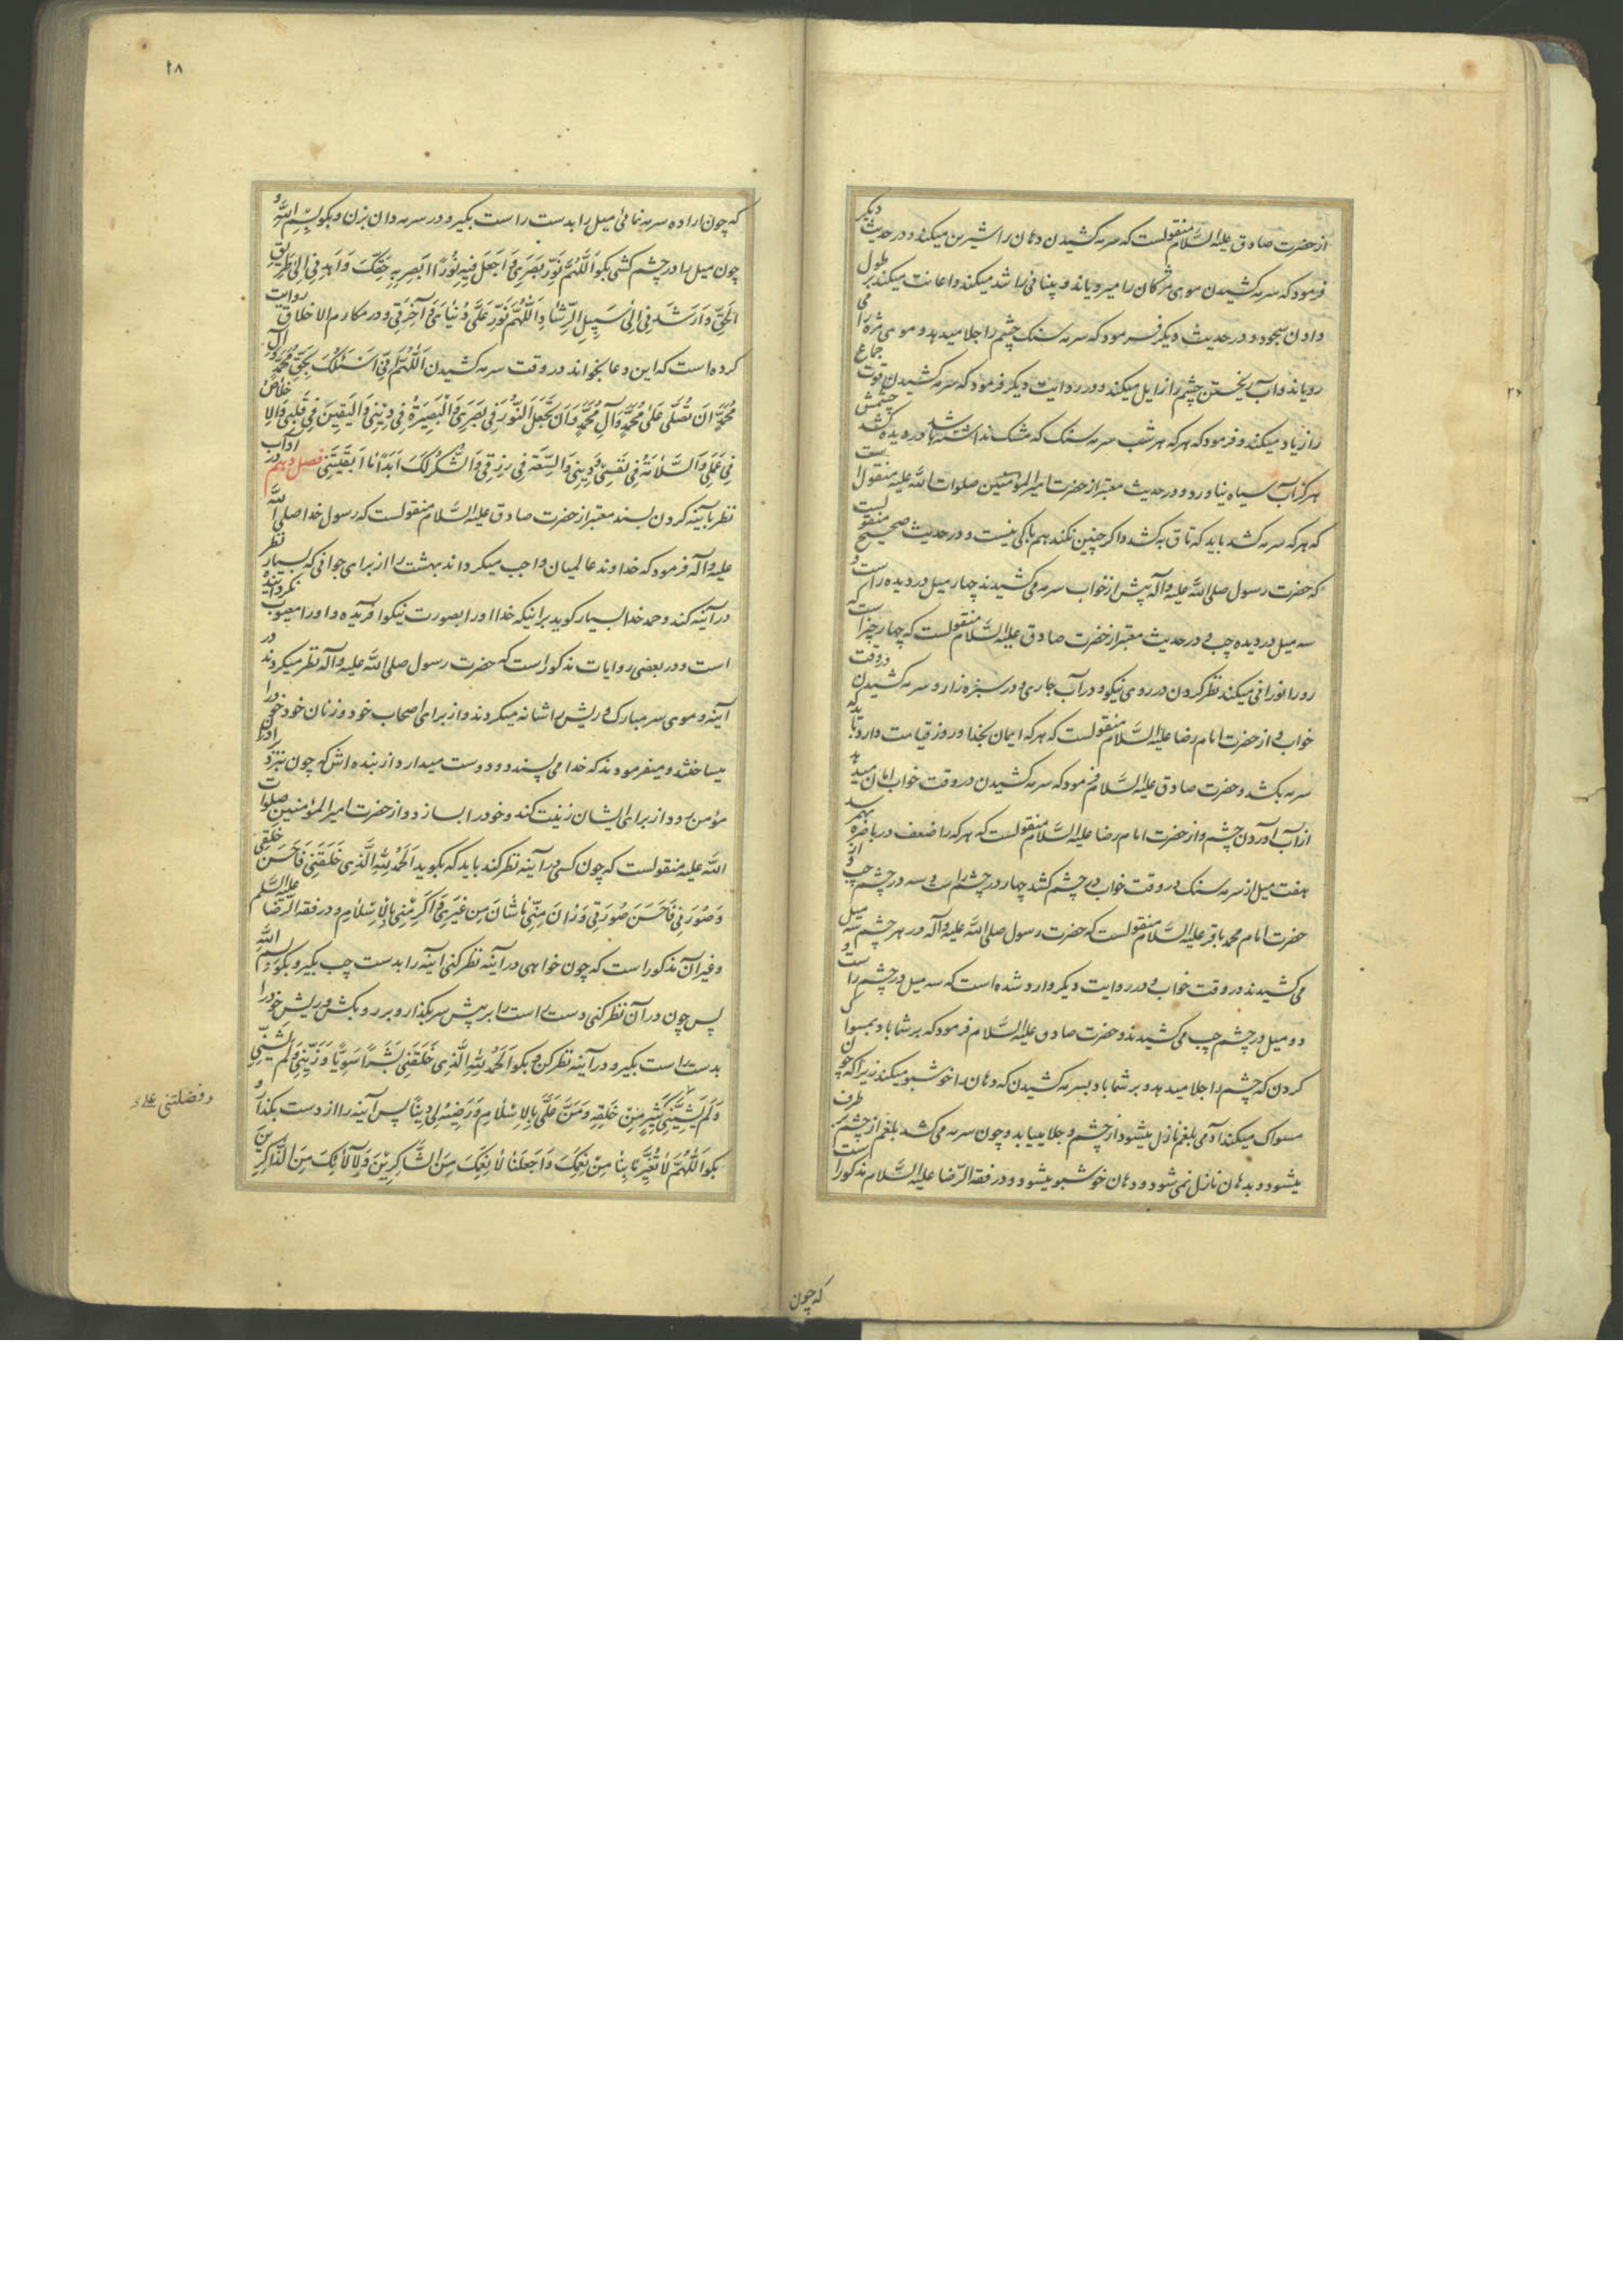 از حضرت صادق علیه السَّلام منقولست که سرمه کشیدن دهان را شیرین میکند و در حدیث دیگر
فرمود که سرمه کشیدن موی مژکان را میرویاند و بینائی را تند میکند و اعانت میکند بر طول
دادن سجود و در حدیث دیگر فرمود که سرمه سنک چشم را جلا میدهد و موی مژه را می
رویاند و آب ریختن چشم را زایل میکند و در روایت دیگر فرمود که سرمه کشیدن قوت جماع
را زیاد میکند و فرمود که هر که هر شب سرمه سنک که مشک نداشته باشد در دیده کشد چشمش
هرگز آب سیاه نیاورد و در حدیث معتبر از حضرت امیر المؤمنین صلوات اللّه علیه منقول است
که هر که سرمه کشد باید که تاق بکشد و اگر چنین نکند هم باکی نیست و در حدیث صحیح منقولست
که حضرت رسول صلی اللّه علیه و آله پیش از خواب سرمه می کشیدند چهار میل در دیده راست و
سه میل در دیده چپ و در حدیث معتبر از حضرت صادق علیه السَّلام منقولست که چهار چیز است که
رو را نورانی میکند نظر کردن در روی نیکو و در آب جاری و در سبزه زار و سرمه کشیدن در وقت
خواب و از حضرت امام رضا علیه السَّلام منقولست که هر که ایمان بخدا و روز قیامت دارد باید که
سرمه بکشد و حضرت صادق علیه السَّلام فرمود که سرمه کشیدن در وقت خواب امان میدهد
از آب آوردن چشم و از حضرت امام رضا علیه السَّلام منقولست که هر که را ضعف در باصره بهم رسد
هفت میل از سرمه سنک در وقت خواب در چشم کشد چهار در چشم راست و سه در چشم چپ و از
حضرت امام محمد باقر علیه السَّلام منقولست که حضرت رسول صلی اللّه علیه و آله در هر چشم سه میل
می کشیدند در وقت خواب و در روایت دیگر وارد شده است که سه میل در چشم راست و
دو میل در چشم چپ می کشیدند و حضرت صادق علیه السَّلام فرمود که بر شما باد بمسواک
کردن که چشم را جلا میدهد و بر شما باد بسرمه کشیدن که دهان را خوشبو میکند زیرا که چون
مسواک میکند آدمی بلغم نازل میشود از چشم و جلا مییابد و چون سرمه می کشد بلغم از چشم بر طرف
میشود و بدهان نازل نمی شود و دهان خوشبو میشود و در فقه الرّضا علیه السَّلام مذکور است
که چون
۲۸
که چون اراده سرمه نمائی میل را بدست راست بگیر و در سرمه دان بزن و بکو بِسْمِ اللّهِ و
چون میل را در چشم کشی بکو اَللّهُمَّ نَوِّرْ بَصَرِی وَ اجْعَلْ فِیهِ نُورًا اُبْصِرُ بِهِ حَقَّکَ وَ اهْدِنِی اِلیٰ طَرِیقِ
الْحَقِّ وَ اَرْشِدْنِی اِلیٰ سَبِیلِ الرَّشٰادِ اَللّهُمَّ نَوِّرْ عَلَیَّ دُنْیٰایَ وَ آخِرَتِی و در مکارم الاخلاق روایت
کرده است که این دعا بخواند در وقت سرمه کشیدن اَللّهُمَّ اِنِّی اَسْئَلُکَ بِحَقِّ مُحَمَّدٍ وَ آلِ
مُحَمَّدٍ اَنْ تُصَلِّیَ عَلیٰ مُحَمَّدٍ وَ آلِ مُحَمَّدٍ وَ اَنْ تَجْعَلَ النُّورَ فِی بَصَرِی وَ الْبَصِیرَةَ فِی دِینِی وَ الْیَقِینَ فِی قَلْبِی وَ الْاِخْلاصَ
فِی عَمَلِی وَ السَّلامَةَ فِی نَفْسِی وَ دِینِی وَ السَّعَةَ فِی رِزْقِی وَ الشُّکْرَ لَکَ اَبَدًا مٰا اَبْقَیْتَنِی فصل دهم در آداب
نظر بآینه کردن بسند معتبر از حضرت صادق علیه السَّلام منقولست که رسول خدا صلی اللّه
علیه و آله فرمود که خداوند عالمیان واجب میگرداند بهشت را از برای جوانی که بسیار نظر
در آینه کند و حمد خدا بسیار گوید بر اینکه خدا او را بصورت نیکو آفریده و او را معیوب نگردانیده
است و در بعضی روایات مذکور است که حضرت رسول صلی اللّه علیه و آله نظر میکردند در
آینه و موی سر مبارک و ریش را شانه میکردند و از برای اصحاب خود و زنان خود خود را
میساختند و میفرمودند که خدا می پسندد و دوست میدارد از بنده اش که چون بنزد برادر
مؤمن رود از برای ایشان زینت کند و خود را بسازد و از حضرت امیر المؤمنین صلوات
اللّه علیه منقولست که چون کسی در آینه نظر کند باید که بکوید اَلْحَمْدُ لِلّهِ الَّذِی خَلَقَنِی فَاَحْسَنَ خَلْقِی
وَ صَوَّرَنِی فَاَحْسَنَ صُورَتِی وَ زٰانَ مِنِّی مٰا شٰانَ مِنْ غَیْرِی وَ اَکْرَمَنِی بِالْاِسْلٰامِ و در فقه الرّضا علیه السَّلم
و غیر آن مذکور است که چون خواهی در آینه نظر کنی آینه را بدست چپ بگیر و بکو بِسْمِ اللّهِ
پس چون در آن نظر کنی دست راست را بر پیش سر بگذار و بر رو بکش و ریش خود را
بدست راست بگیر و در آینه نظر کن و بکو اَلْحَمْدُ لِلّهِ الَّذِی خَلَقَنِی بَشَرًا سَوِیًّا وَ زَیَّنَنِی وَ لَمْ یَشِنِّی
وَ فَضَّلَنِی عَلیٰ کَثِیرٍ مِنْ خَلْقِهِ وَ مَنَّ عَلَیَّ بِالْاِسْلٰامِ وَ رَضِیَهُ لِی دِینًا پس آینه را از دست بگذار و
بکو اَللّهُمَّ لٰا تُغَیِّرْ مٰا بِنٰا مِنْ نِعَمِکَ وَ اجْعَلْنٰا لِاَنْعُمِکَ مِنَ الشّٰاکِرِینَ وَ لِآلٰائِکَ مِنَ الذّٰاکِرِینَ
و فضلتنی علی